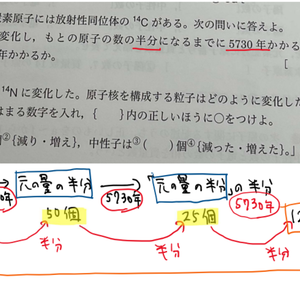 素原子には放射性同位体の ¹⁴C がある。次の問いに答えよ。
変化し，もとの原子の数の半分になるまでに 5730 年かか
年かかるか。 [
¹⁴N に変化した。原子核を構成する粒子はどのように変化した
はまる数字を入れ，{ }内の正しいほうに○をつけよ。
個②{減り・増え}，中性子は③( )個④{減った・増えた}。」
元の量の半分 元の量の半分 の半分
年 5730年 5730年
50個 25個
半分 半分 半分